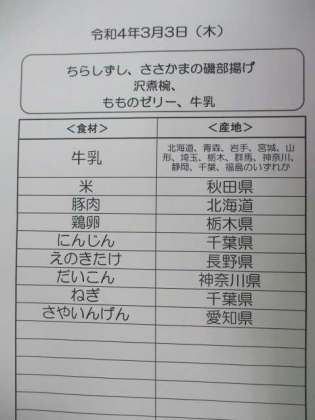 令和4年3月3日（木）
ちらしずし、ささかまの磯部揚げ
沢煮椀、
もものゼリー、牛乳
＜食材＞ ＜産地＞
牛乳 北海道、青森、岩手、宮城、山
形、埼玉、栃木、群馬、神奈川、
静岡、千葉、福島のいずれか
米 秋田県
豚肉 北海道
鶏卵 栃木県
にんじん 千葉県
えのきたけ 長野県
だいこん 神奈川県
ねぎ 千葉県
さやいんげん 愛知県